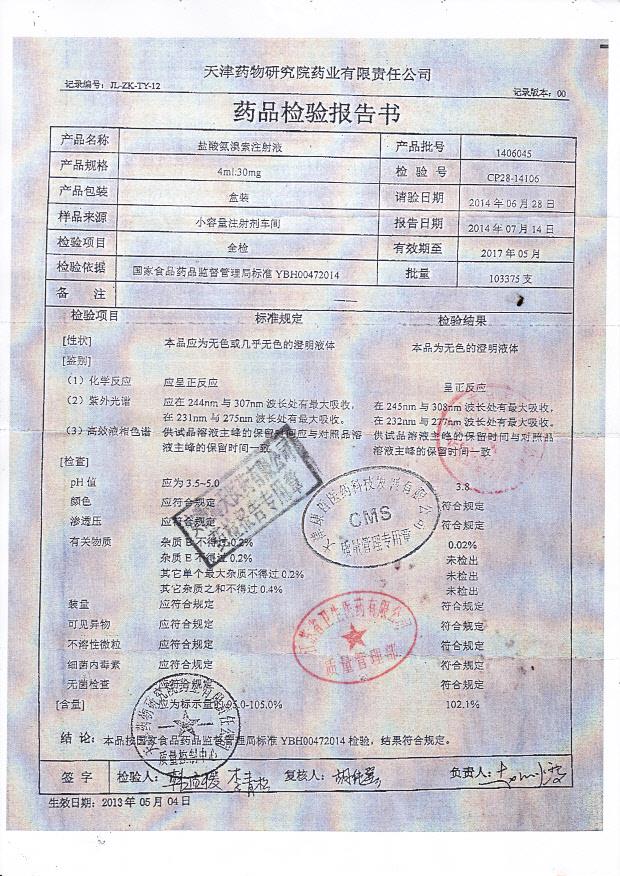 天津药物研究院药业有限责任公司
记录编号：JL-ZK-TY-12 记录版本：00
药品检验报告书
产品名称 盐酸氨溴索注射液 产品批号 1406045
产品规格 4ml:30mg 检 验 号 CP28-14106
产品包装 盒装 请验日期 2014年06月28日
样品来源 小容量注射剂车间 报告日期 2014年07月14日
检验项目 全检 有效期至 2017年05月
检验依据 国家食品药品监督管理局标准YBH00472014 批量 103375支
备 注 —
检验项目 标准规定 检验结果
[性状] 本品应为无色或几乎无色的澄明液体 本品为无色的澄明液体
[鉴别]
（1）化学反应 应呈正反应 呈正反应
（2）紫外光谱 应在244nm与307nm波长处有最大吸收， 在245nm与308nm波长处有最大吸收，
在231nm与275nm波长处有最大吸收 在232nm与277nm波长处有最大吸收
（3）高效液相色谱 供试品溶液主峰的保留时间应与对照品溶 供试品溶液主峰的保留时间与对照品
液主峰的保留时间一致 溶液主峰的保留时间一致
[检查]
pH值 应为3.5-5.0 3.8
颜色 应符合规定 符合规定
渗透压 应符合规定 符合规定
有关物质 杂质B不得过0.2% 0.02%
杂质E不得过0.2% 未检出
其它单个最大杂质不得过0.2% 未检出
其它杂质之和不得过0.4% 未检出
装量 应符合规定 符合规定
可见异物 应符合规定 符合规定
不溶性微粒 应符合规定 符合规定
细菌内毒素 应符合规定 符合规定
无菌检查 应符合规定 符合规定
[含量] 应为标示量的95.0-105.0% 102.1%
结 论：本品按国家食品药品监督管理局标准YBH00472014检验，结果符合规定。
签 字 检验人： 复核人： 负责人：
生效日期：2013年05月04日
CMS
质量管理专用章
质量管理部
天津药物研究院药业有限责任公司
质量控制中心